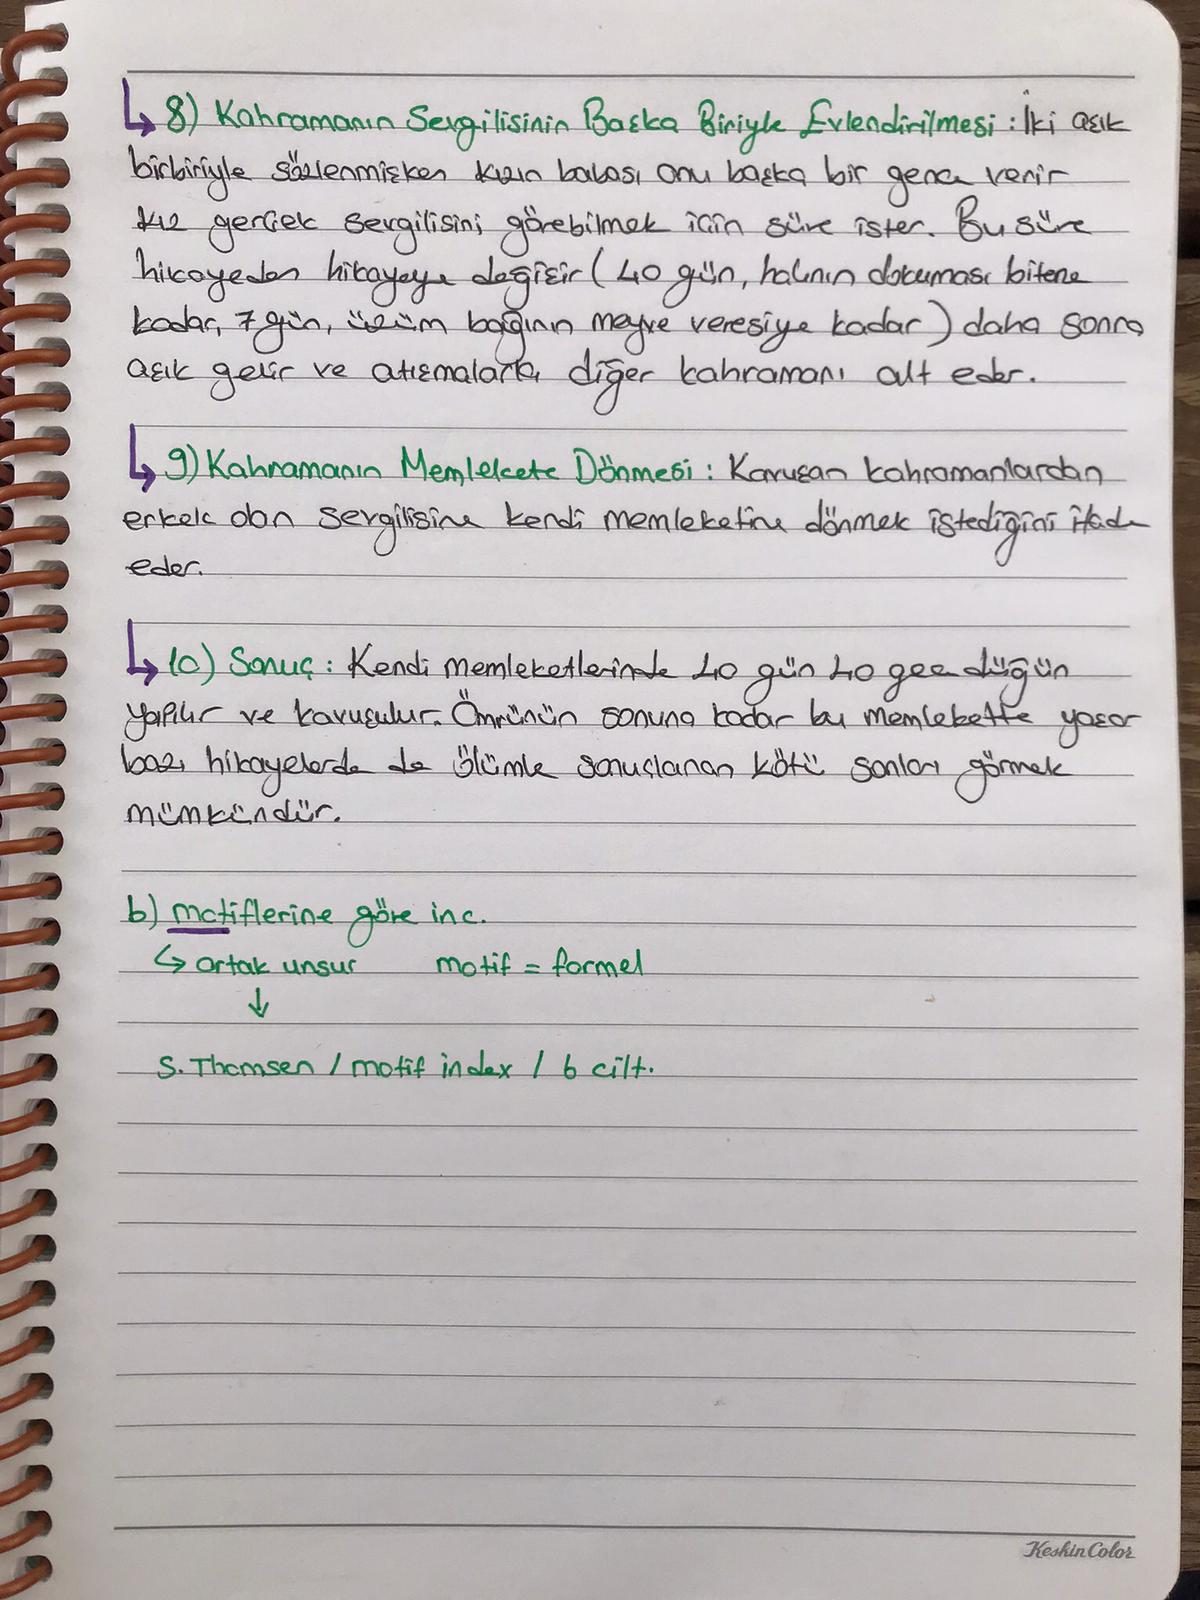 ↳ 8) Kahramanın Sevgilisinin Başka Biriyle Evlendirilmesi : İki aşık
birbiriyle sözlenmişken kızın babası onu başka bir gence verir
kız gerçek sevgilisini görebilmek için süre ister. Bu süre
hikayeden hikayeye değişir ( 40 gün, halının dokuması bitene
kadar, 7 gün, üzüm bağının meyve veresiye kadar ) daha sonra
aşık gelir ve atışmalarla diğer kahramanı alt eder.
↳ 9) Kahramanın Memlekete Dönmesi : Kavuşan kahramanlardan
erkek olan sevgilisine kendi memleketine dönmek istediğini ifade
eder.
↳ 10) Sonuç : Kendi memleketlerinde 40 gün 40 gece düğün
yapılır ve kavuşulur. Ömrünün sonuna kadar bu memlekette yaşar
bazı hikayelerde de ölümle sonuçlanan kötü sonları görmek
mümkündür.
b) motiflerine göre inc.
↳ ortak unsur motif = formel
↓
S. Thomsen / motif index / 6 cilt.
KeskinColor